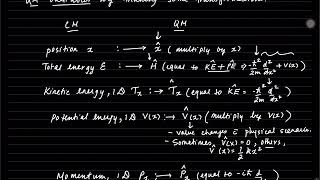 CM QM
position x : → x̂ (multiply by x)
Total energy E : → Ĥ (equal to K̂E + P̂E = -ħ²/2m d²/dx² + V(x))
Kinetic energy, 1D Tₓ : → T̂ₓ (equal to K̂E = -ħ²/2m d²/dx²)
Potential energy, 1D V(x) : → V̂(x) (multiply by V(x))
- value changes physical scenario.
- Sometimes, V̂(x) = 0, others,
V̂(x) = ½kx²
Momentum, 1D Pₓ : → P̂ₓ (equal to -iħ d